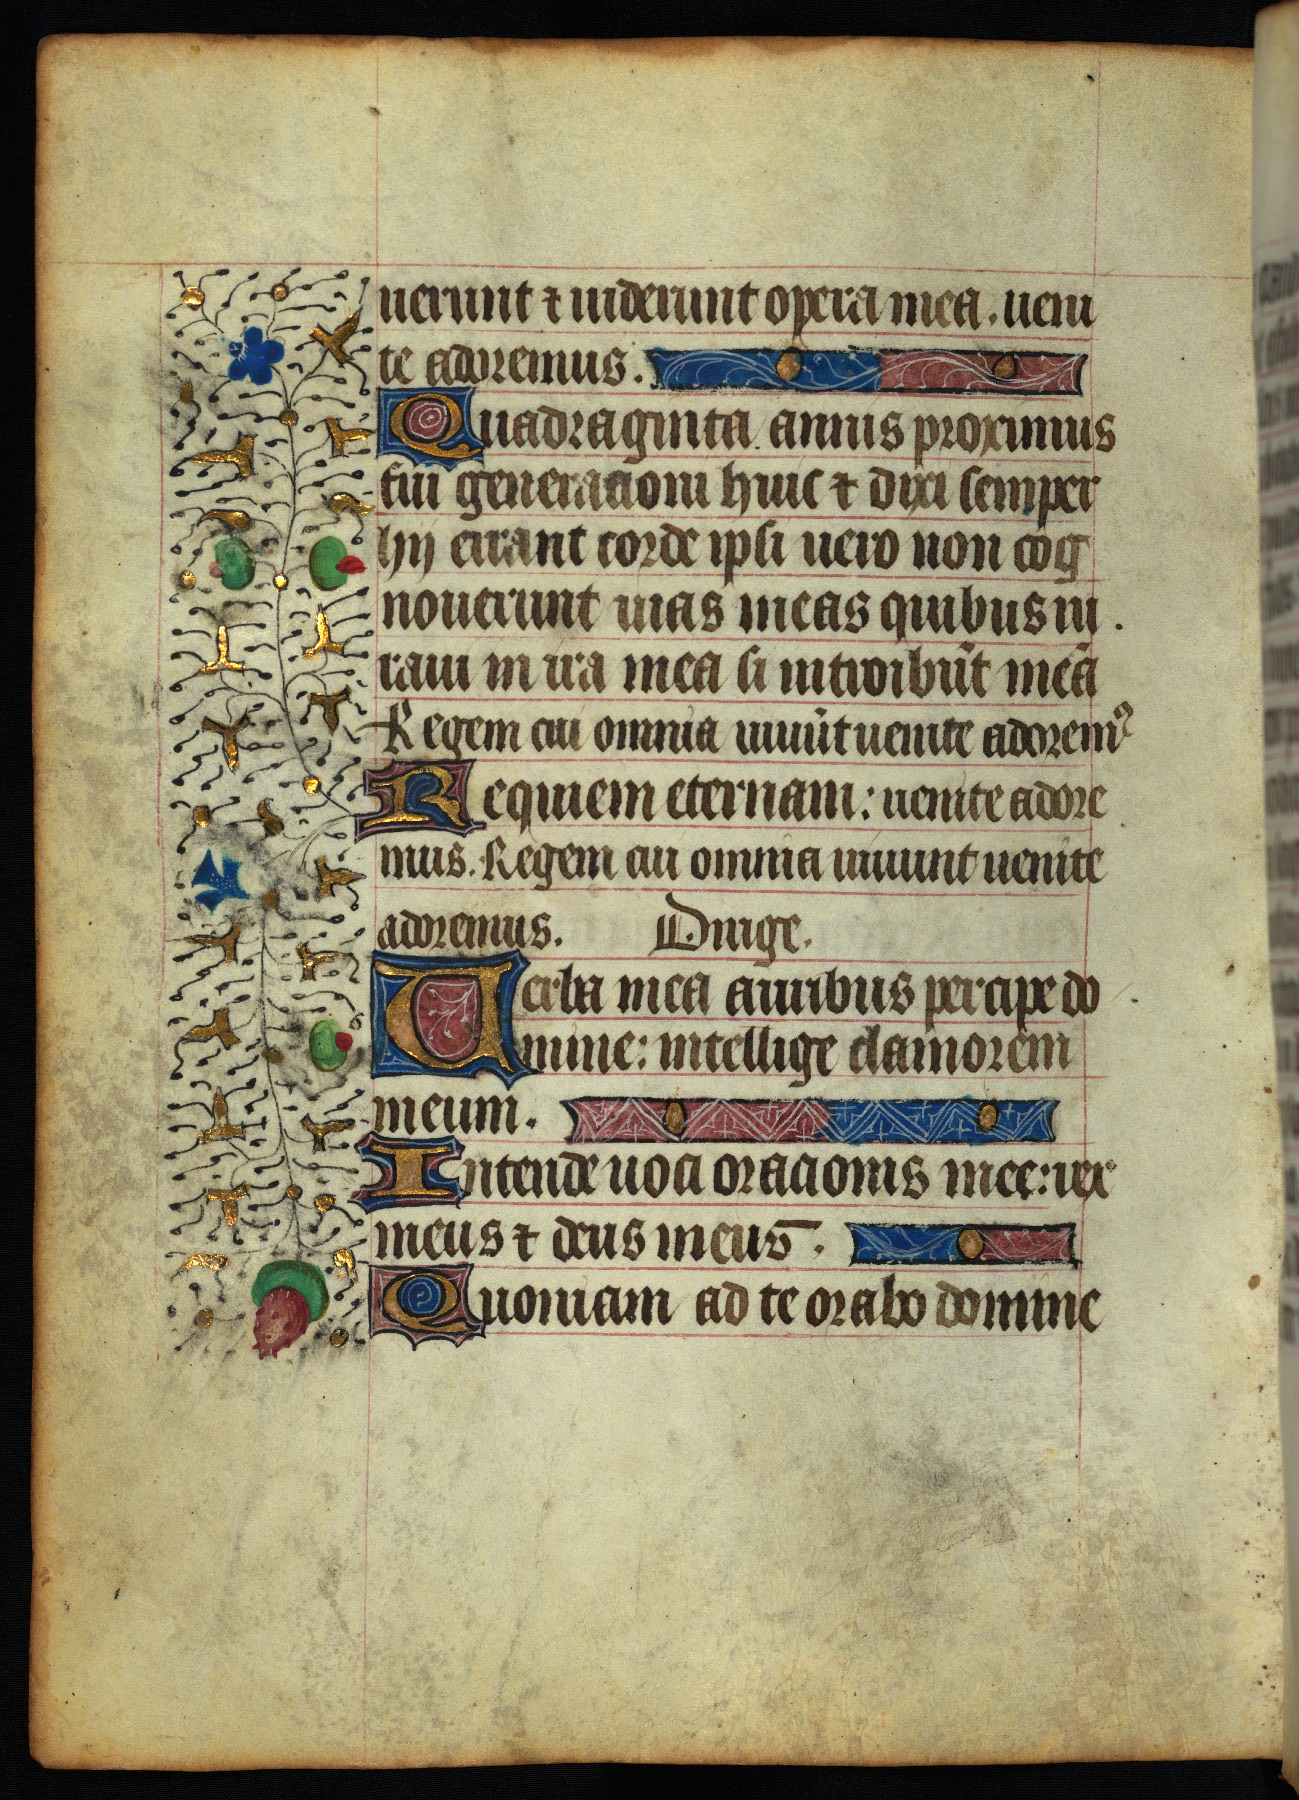 uerunt ⁊ uiderunt opera mea. ueni
te adoremus.
Quadraginta annis proximus
fui generationi huic ⁊ dixi semper
hij errant corde ipsi uero non cog
nouerunt uias meas quibus iu
raui in ira mea si introibūt meā
Regem cui omnia uiuūt uenite adoremꝰ
Requiem eternam: uenite adore
mus. Regem cui omnia uiuunt uenite
adoremus. Dirige.
Uerba mea auribus percipe do
mine: intellige clamorem
meum.
Intende uoci orationis mee: rex
meus ⁊ deus meus.
Quoniam ad te orabo domine